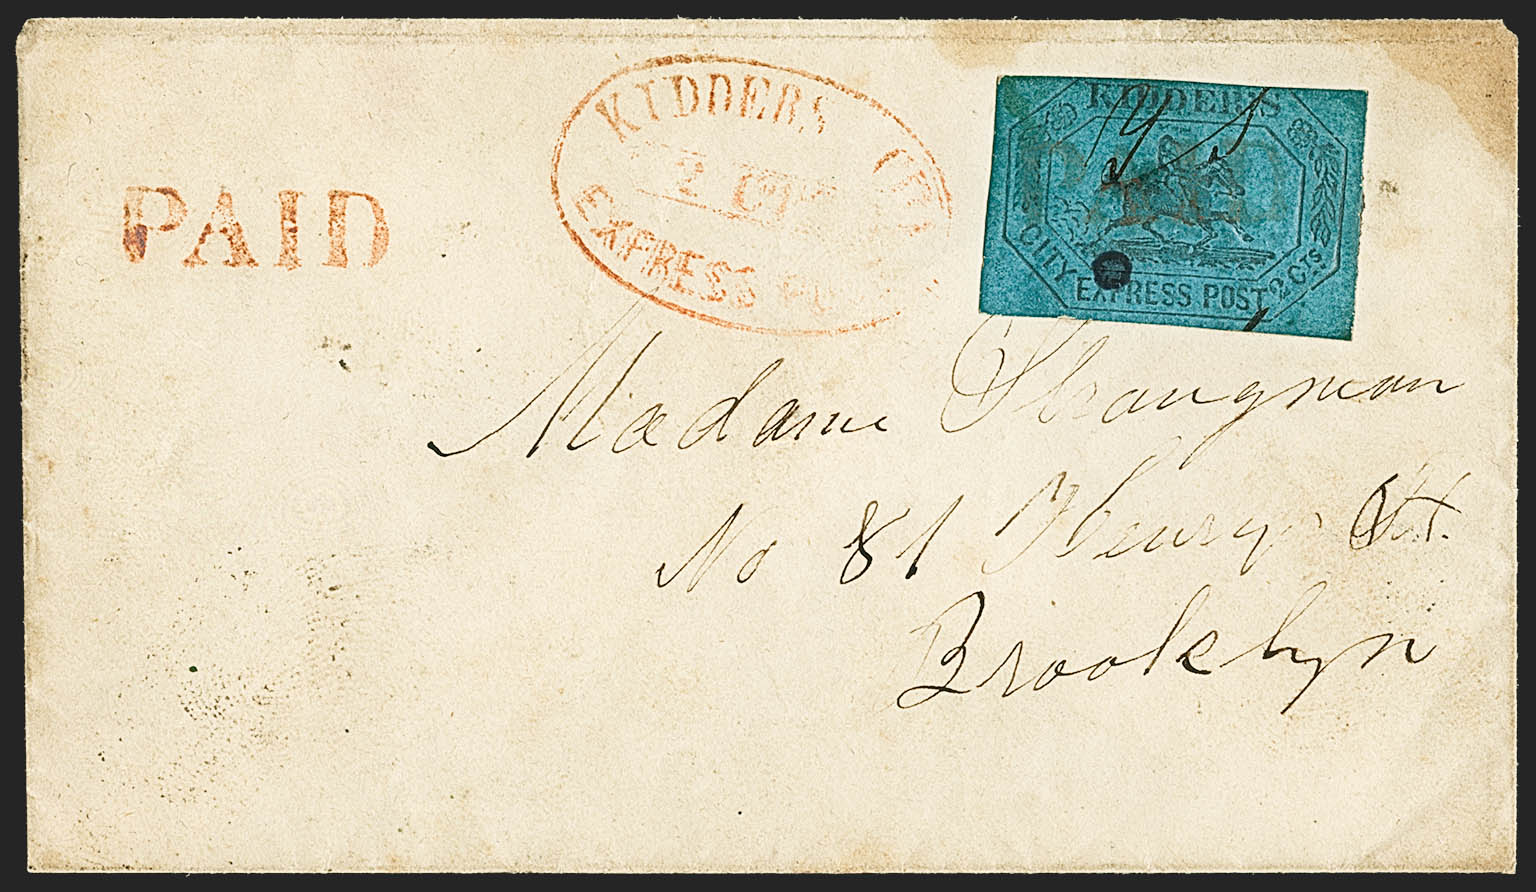 PAID
KIDDERS CITY
2 CTS
EXPRESS POST
KIDDER'S
PAID
CITY EXPRESS POST 2 CTS.
Madame Strangman
No 81 Henry St.
Brooklyn